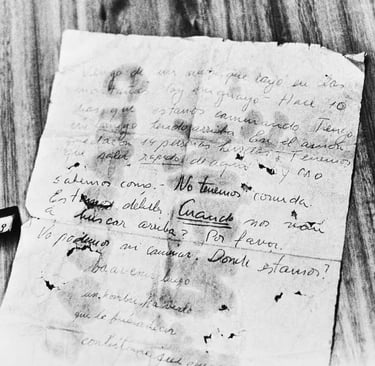 Vengo de un avión que cayó en las
montañas. Soy uruguayo. Hace 10
días que estamos caminando. Tengo
un amigo herido arriba. En el avión
quedan 14 personas heridas. Tenemos
que salir rápido de aquí y no
sabemos como. - No tenemos comida.
Estamos débiles. Cuando nos van
a buscar arriba? Por favor.
No podemos ni caminar. Donde estamos?
va a venir luego
un hombre a verlo
que le fui a decir